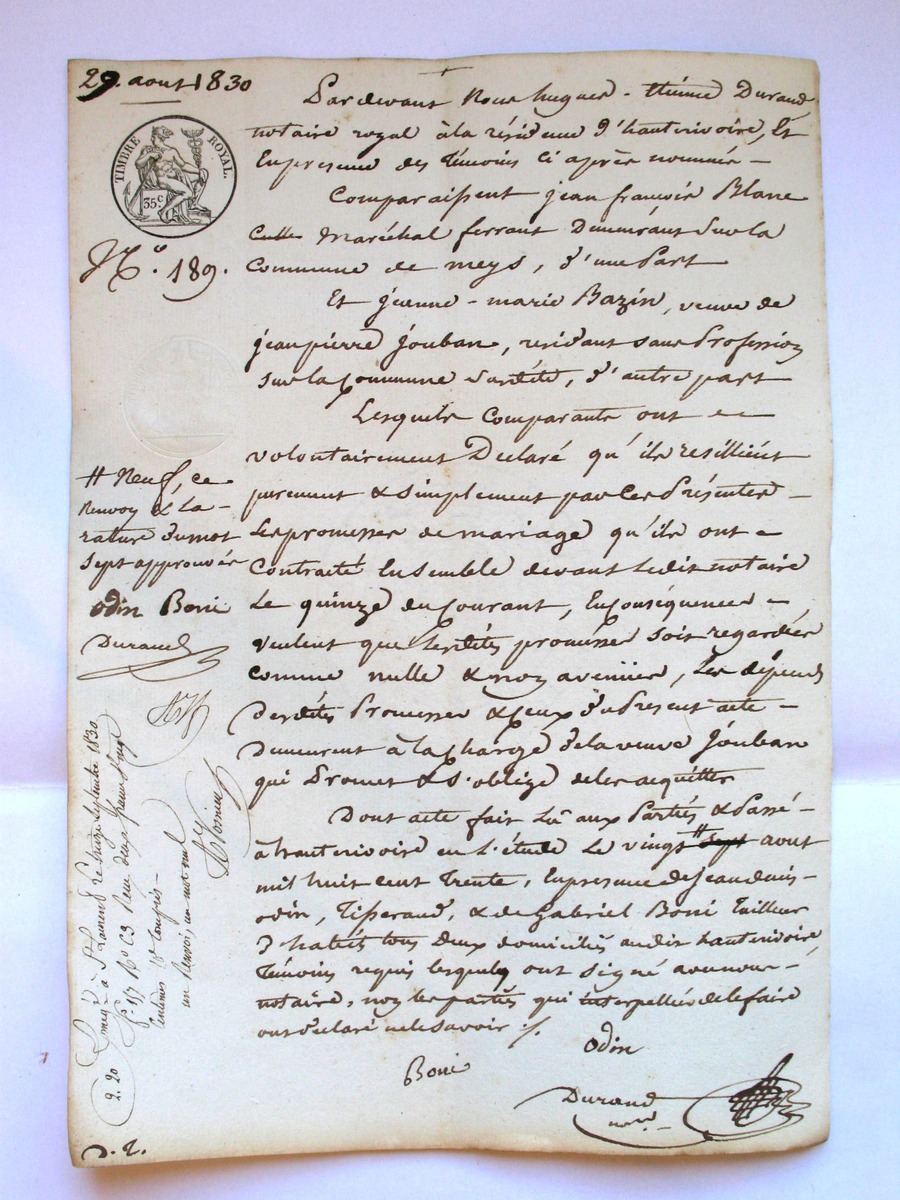 29. aout 1830
TIMBRE ROYAL.
35c
No. 189.
Pardevant Nous hugues-étienne Durand
notaire royal à la résidence d'hauterivoire, Et
En presence des témoins ci après nommés -
Comparaissent jean françois Blanc
Maréchal ferrant demeurant sur la
Commune de meys, d'une part
Et jeanne-marie Bazin, veuve de
jean pierre jouban, residant sans Profession
sur la Commune susdite, d'autre part
Lesquels Comparants ont
volontairement Declaré qu'ils resillient
purement & simplement par Ces Présentes -
Les promesses de mariage qu'ils ont -
Contracté Ensemble devant Ledit notaire
Le quinze du Courant, En Conséquence -
veulent que Lesdites promesses soit regardées
comme nulle & non avenues, Les dépens
desdites Promesses & Ceux du Present acte -
Demeurent à la Charge de la veuve jouban
qui Promet & s'oblige de les acquitter
Dont acte fait Lû aux Parties & Passé -
à hauterivoire en L'étude Le vingt # sept aout
mil huit cent trente, En presence de jean
odin, tisserand, & de gabriel Boni tailleur
d'habits tous deux domiciliés audit hauterivoire
témoins requis lesquels ont signé avec nous -
notaire, non les parties qui interpellées de le faire
ont déclaré ne le savoir ./.
Odin
Boni
Durand
nore
# Neuf, ce
Renvoy & La -
rature du mot
sept approuvés
Odin Boni
Durand
Enregé à St Laurent le septembre 1830
fo 117 Ro C3 Reçu deux francs vingt
Centimes Do Compris -
un Renvoi, un mot nul
2. 20
D. 2.